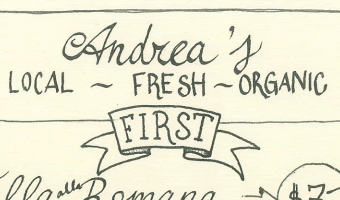 Andrea's
LOCAL ~ FRESH ~ ORGANIC
FIRST
alla Romana $7-